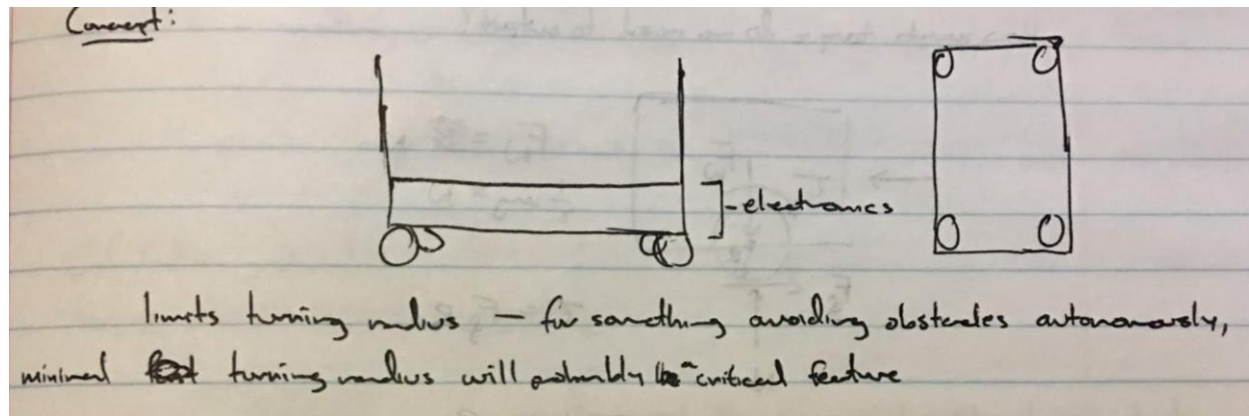 Concept:
-electronics
limits turning radius — for something avoiding obstacles autonomously,
minimal turning radius will probably be a critical feature